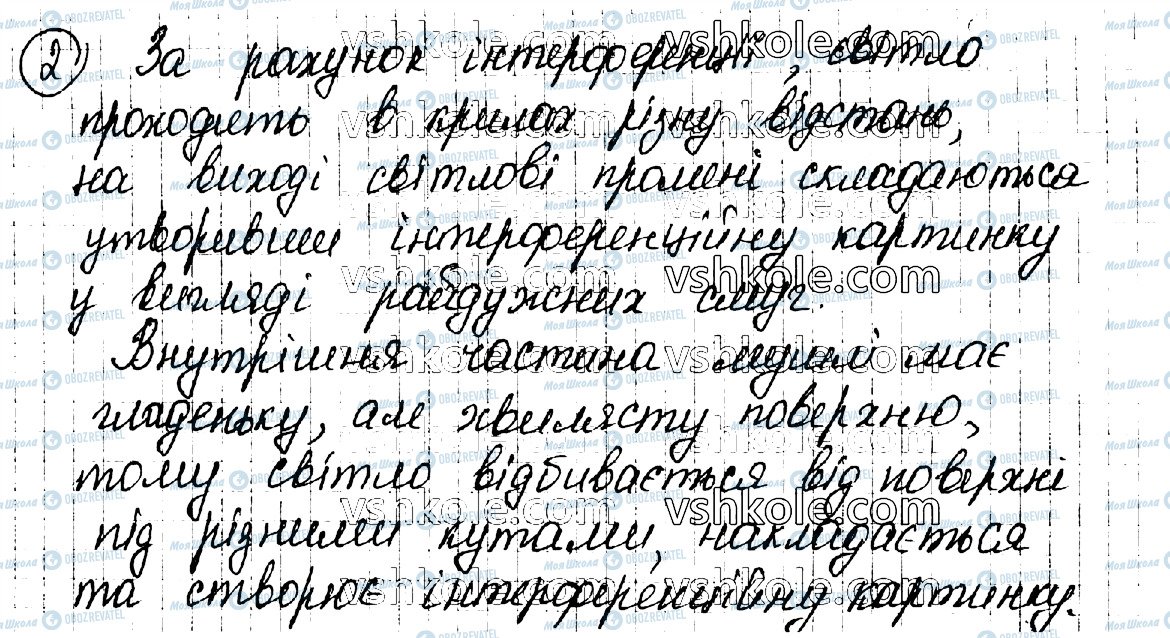 2) За рахунок інтерференції, світло
проходить в крилах різну відстань,
на виході світлові промені складаються
утворивши інтерференційну картинку
у вигляді райдужних смуг.
Внутрішня частина мушлі має
гладеньку, але хвилясту поверхню,
тому світло відбивається від поверхні
під різними кутами, накладається
та створює інтерференційну картинку.
vshkole.com
Моя Школа
OBOZREVATEL